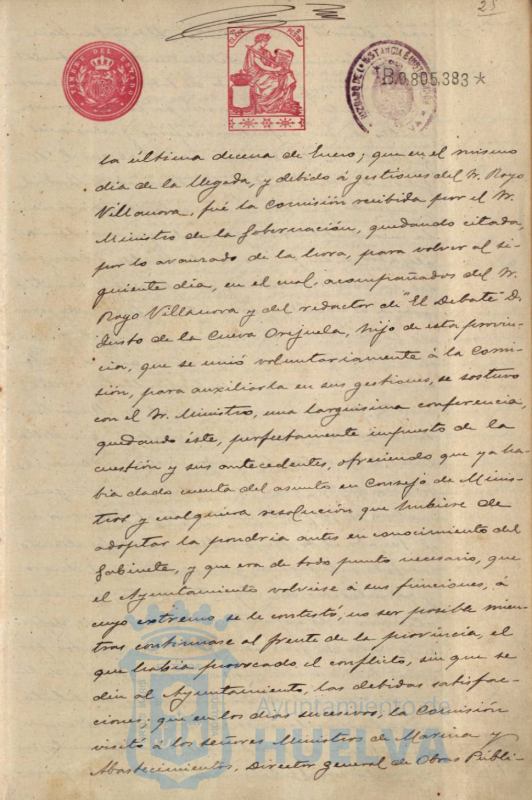 25
TIMBRE DEL ESTADO
B.0.805.383 *
la última decena de Enero; que en el mismo
día de la llegada, y debido á gestiones del Sr. Royo
Villanova, fué la Comisión recibida por el Sr.
Ministro de la Gobernación, quedando citada,
por lo avanzado de la hora, para volver al si-
guiente día, en el cual, acompañados del Sr.
Royo Villanova y del redactor de "El Debate" D.
Justo de la Cueva Orejuela, hijo de esta provin-
cia, que se unió voluntariamente á la Comi-
sión, para auxiliarla en sus gestiones, se sostuvo
con el Sr. Ministro, una larguisima conferencia,
quedando éste, perfectamente impuesto de la
cuestión y sus antecedentes, ofreciendo que ya ha-
bía dado cuenta del asunto en Consejo de Minis-
tros y cualquiera resolución que hubiese de
adoptar la pondría antes en conocimiento del
Gabinete, y que era de todo punto necesario, que
el Ayuntamiento volviese á sus funciones, á
cuyo extremo se le contestó, no ser posible mien-
tras continuase al frente de la provincia, el
que había provocado el conflicto, sin que se
dén al Ayuntamiento, las debidas satisfac-
ciones; que en los días sucesivos, la Comisión
visitó á los señores Ministros de Marina y
Abastecimientos, Director general de Obras Públi-
Ayuntamiento de
HUELVA